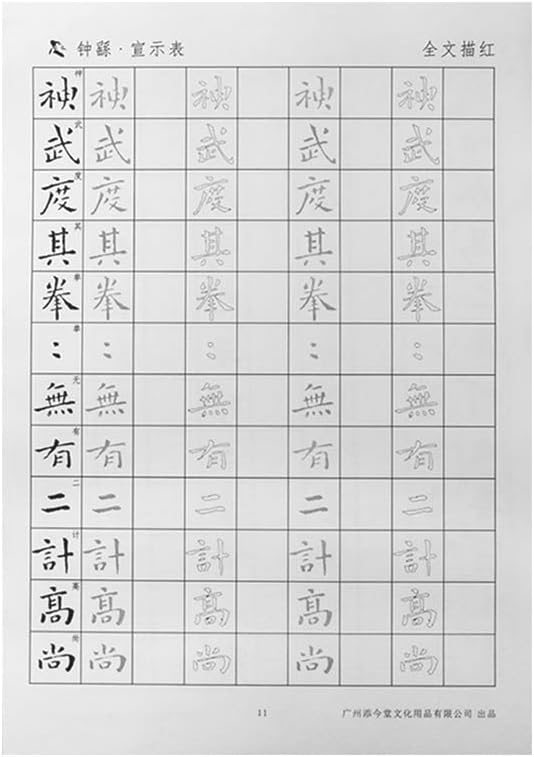 钟繇·宣示表 全文描红
神 神 神 神 神 神
武 武 武 武 武 武
度 度 度 度 度 度
其 其 其 其 其 其
拳 拳 拳 拳 拳 拳
拳 : : : : :
无 無 無 無 無 無
有 有 有 有 有 有
二 二 二 二 二 二
计 計 計 計 計 計
高 高 高 高 高 高
尚 尚 尚 尚 尚 尚
11 广州添今堂文化用品有限公司 出品